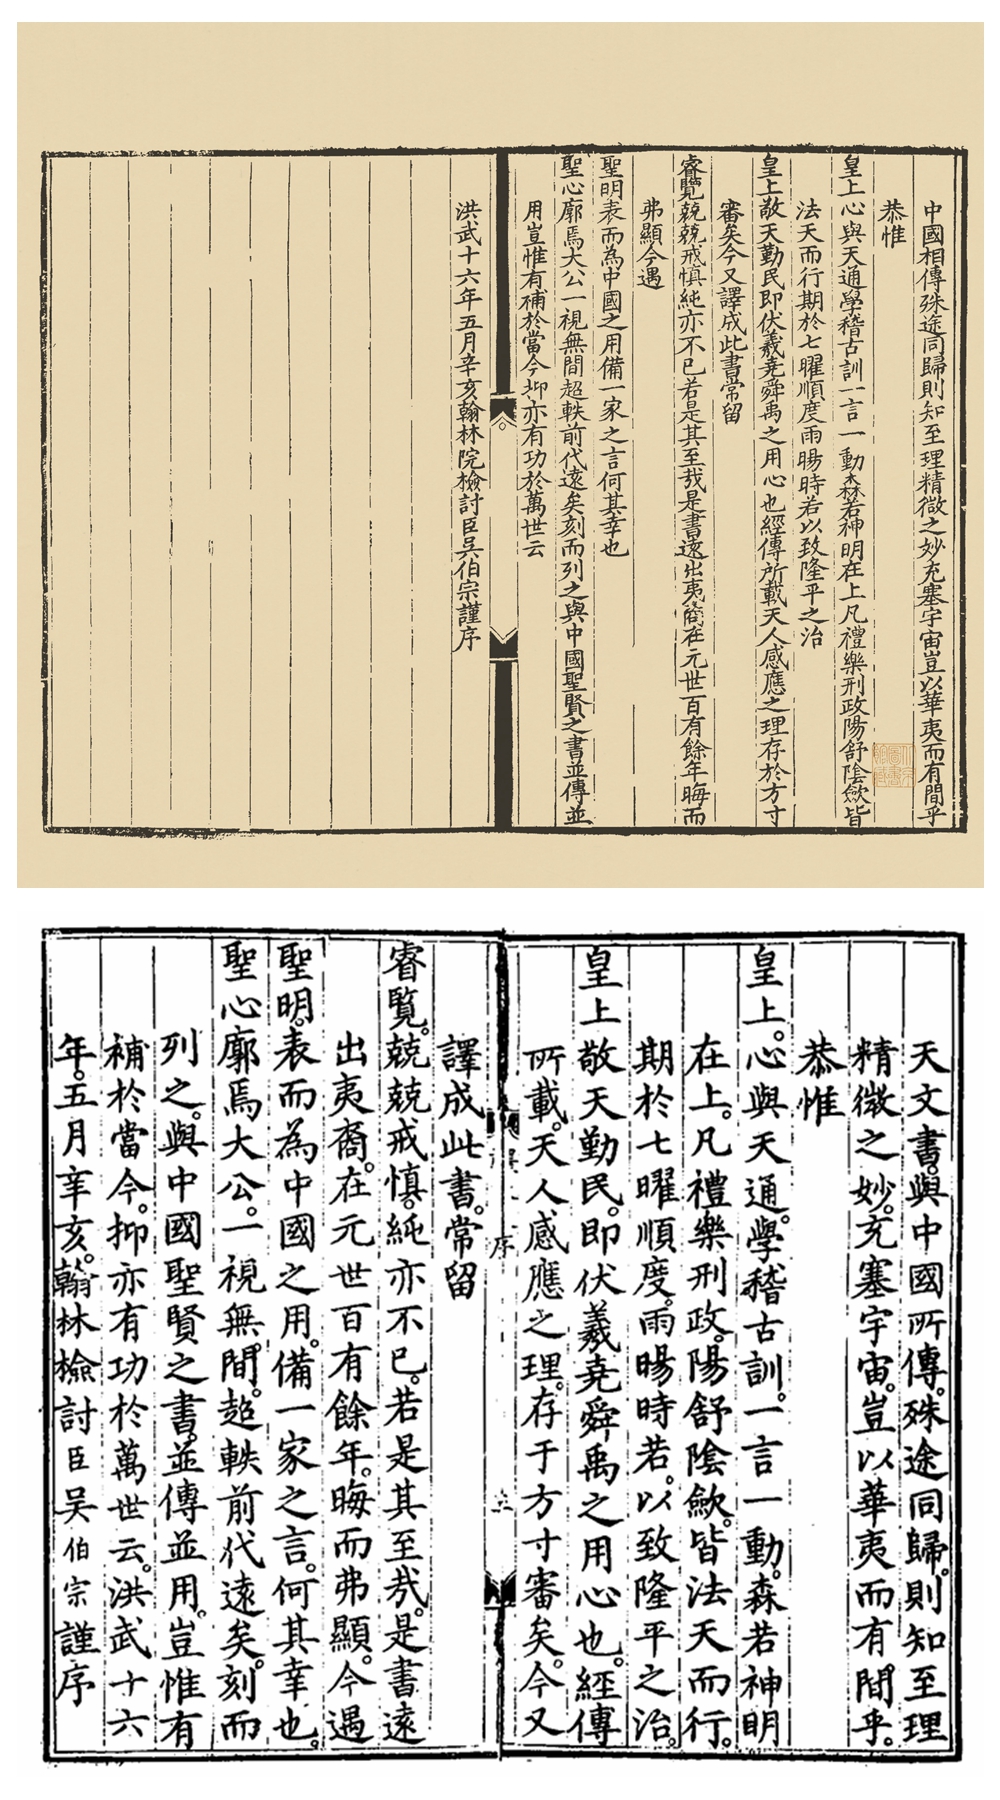 中國相傳殊途同歸則知至理精微之妙充塞宇宙豈以華夷而有間乎
恭惟
皇上心與天通學稽古訓一言一動森若神明在上凡禮樂刑政陽舒陰歛皆
法天而行期於七曜順度雨暘時若以致隆平之治
皇上敬天勤民即伏羲堯舜禹之用心也經傳所載天人感應之理存於方寸
審矣今又譯成此書常留
睿覽兢兢戒慎純亦不已若是其至哉是書遠出夷裔在元世百有餘年晦而
弗顯今遇
聖明表而為中國之用備一家之言何其幸也
聖心廓焉大公一視無間超軼前代遠矣刻而列之與中國聖賢之書並傳並
用豈惟有補於當今抑亦有功於萬世云
洪武十六年五月辛亥翰林院檢討臣吳伯宗謹序
天文書。與中國所傳。殊途同歸。則知至理
精微之妙。充塞宇宙。豈以華夷而有間乎。
恭惟
皇上。心與天通。學稽古訓。一言一動。森若神明
在上。凡禮樂刑政。陽舒陰歛。皆法天而行。
期於七曜順度。雨暘時若。以致隆平之治。
皇上敬天勤民。即伏羲堯舜禹之用心也。經傳
所載。天人感應之理。存于方寸審矣。今又
序
譯成此書。常留
睿覽。兢兢戒慎。純亦不已。若是其至哉。是書遠
出夷裔。在元世百有餘年。晦而弗顯。今遇
聖明。表而為中國之用。備一家之言。何其幸也。
聖心廓焉大公。一視無間。超軼前代遠矣。刻而
列之。與中國聖賢之書。並傳並用。豈惟有
補於當今。抑亦有功於萬世云。洪武十六
年。五月辛亥。翰林檢討臣吳伯宗謹序